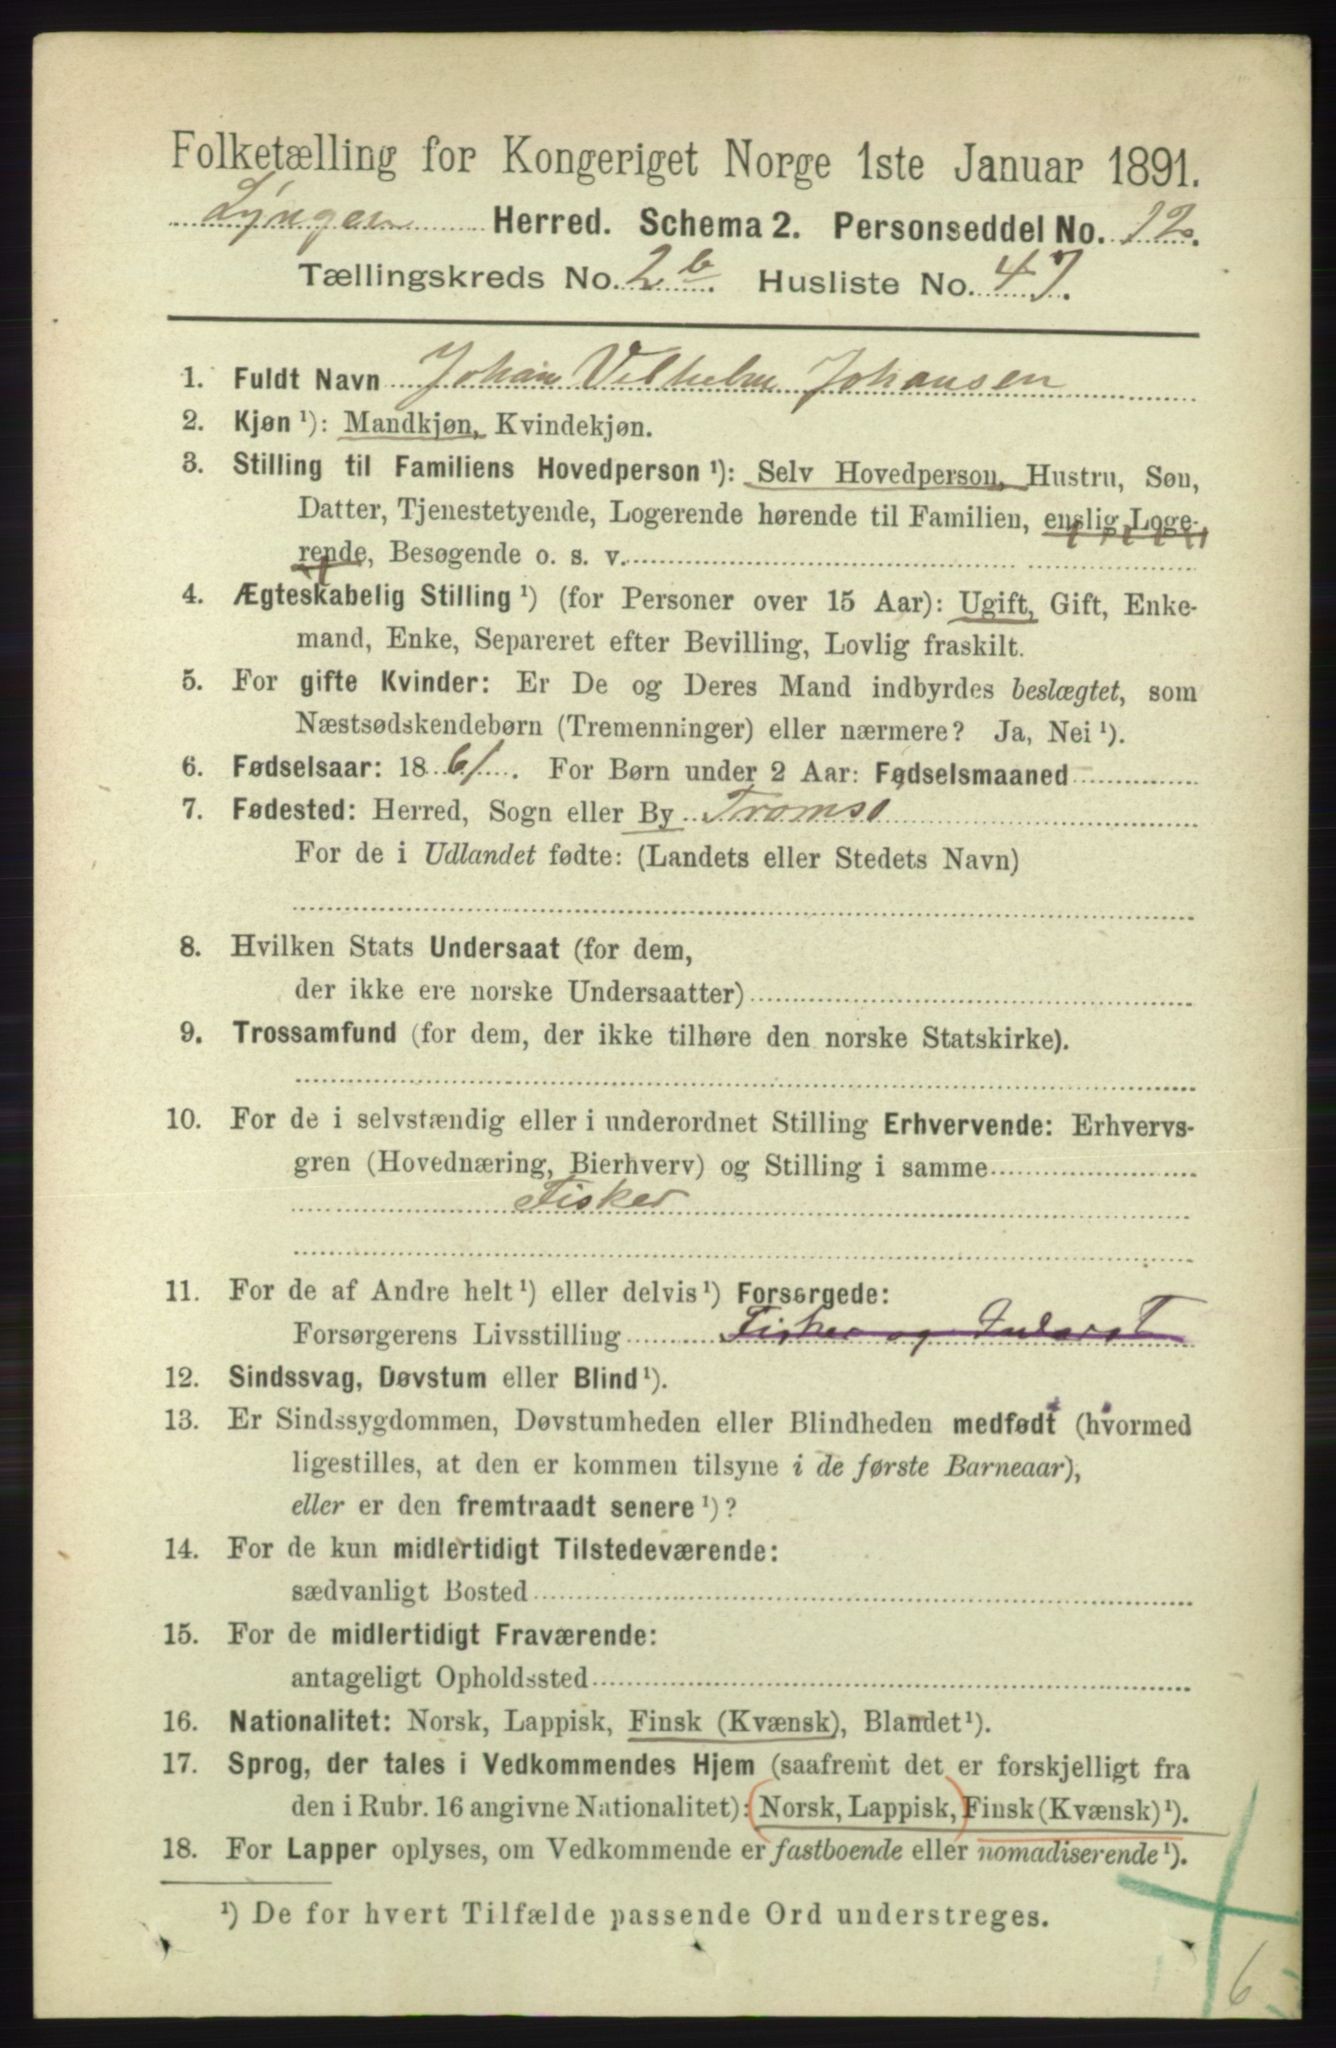 Folketælling for Kongeriget Norge 1ste Januar 1891.
Lyngen Herred. Schema 2. Personseddel No. 12.
Tællingskreds No. 2b. Husliste No. 47.
1. Fuldt Navn Johan Vilhelm Johansen
2. Kjøn¹): Mandkjøn, Kvindekjøn.
3. Stilling til Familiens Hovedperson¹): Selv Hovedperson, Hustru, Søn,
Datter, Tjenestetyende, Logerende hørende til Familien, enslig Loge-
rende, Besøgende o. s. v.
4. Ægteskabelig Stilling¹) (for Personer over 15 Aar): Ugift, Gift, Enke-
mand, Enke, Separeret efter Bevilling, Lovlig fraskilt.
5. For gifte Kvinder: Er De og Deres Mand indbyrdes beslægtet, som
Næstsødskendebørn (Tremenninger) eller nærmere? Ja, Nei¹).
6. Fødselsaar: 1861. For Børn under 2 Aar: Fødselsmaaned
7. Fødested: Herred, Sogn eller By Tromsø
For de i Udlandet fødte: (Landets eller Stedets Navn)
8. Hvilken Stats Undersaat (for dem,
der ikke ere norske Undersaatter)
9. Trossamfund (for dem, der ikke tilhøre den norske Statskirke).
10. For de i selvstændig eller i underordnet Stilling Erhvervende: Erhvervs-
gren (Hovednæring, Bierhverv) og Stilling i samme
Fisker
11. For de af Andre helt¹) eller delvis¹) Forsørgede:
Forsørgerens Livsstilling Fisker og
12. Sindssvag, Døvstum eller Blind¹).
13. Er Sindssygdommen, Døvstumheden eller Blindheden medfødt (hvormed
ligestilles, at den er kommen tilsyne i de første Barneaar),
eller er den fremtraadt senere¹)?
14. For de kun midlertidigt Tilstedeværende:
sædvanligt Bosted
15. For de midlertidigt Fraværende:
antageligt Opholdssted
16. Nationalitet: Norsk, Lappisk, Finsk (Kvænsk), Blandet¹).
17. Sprog, der tales i Vedkommendes Hjem (saafremt det er forskjelligt fra
den i Rubr. 16 angivne Nationalitet): Norsk, Lappisk, Finsk (Kvænsk)¹).
18. For Lapper oplyses, om Vedkommende er fastboende eller nomadiserende¹).
¹) De for hvert Tilfælde passende Ord understreges.
6